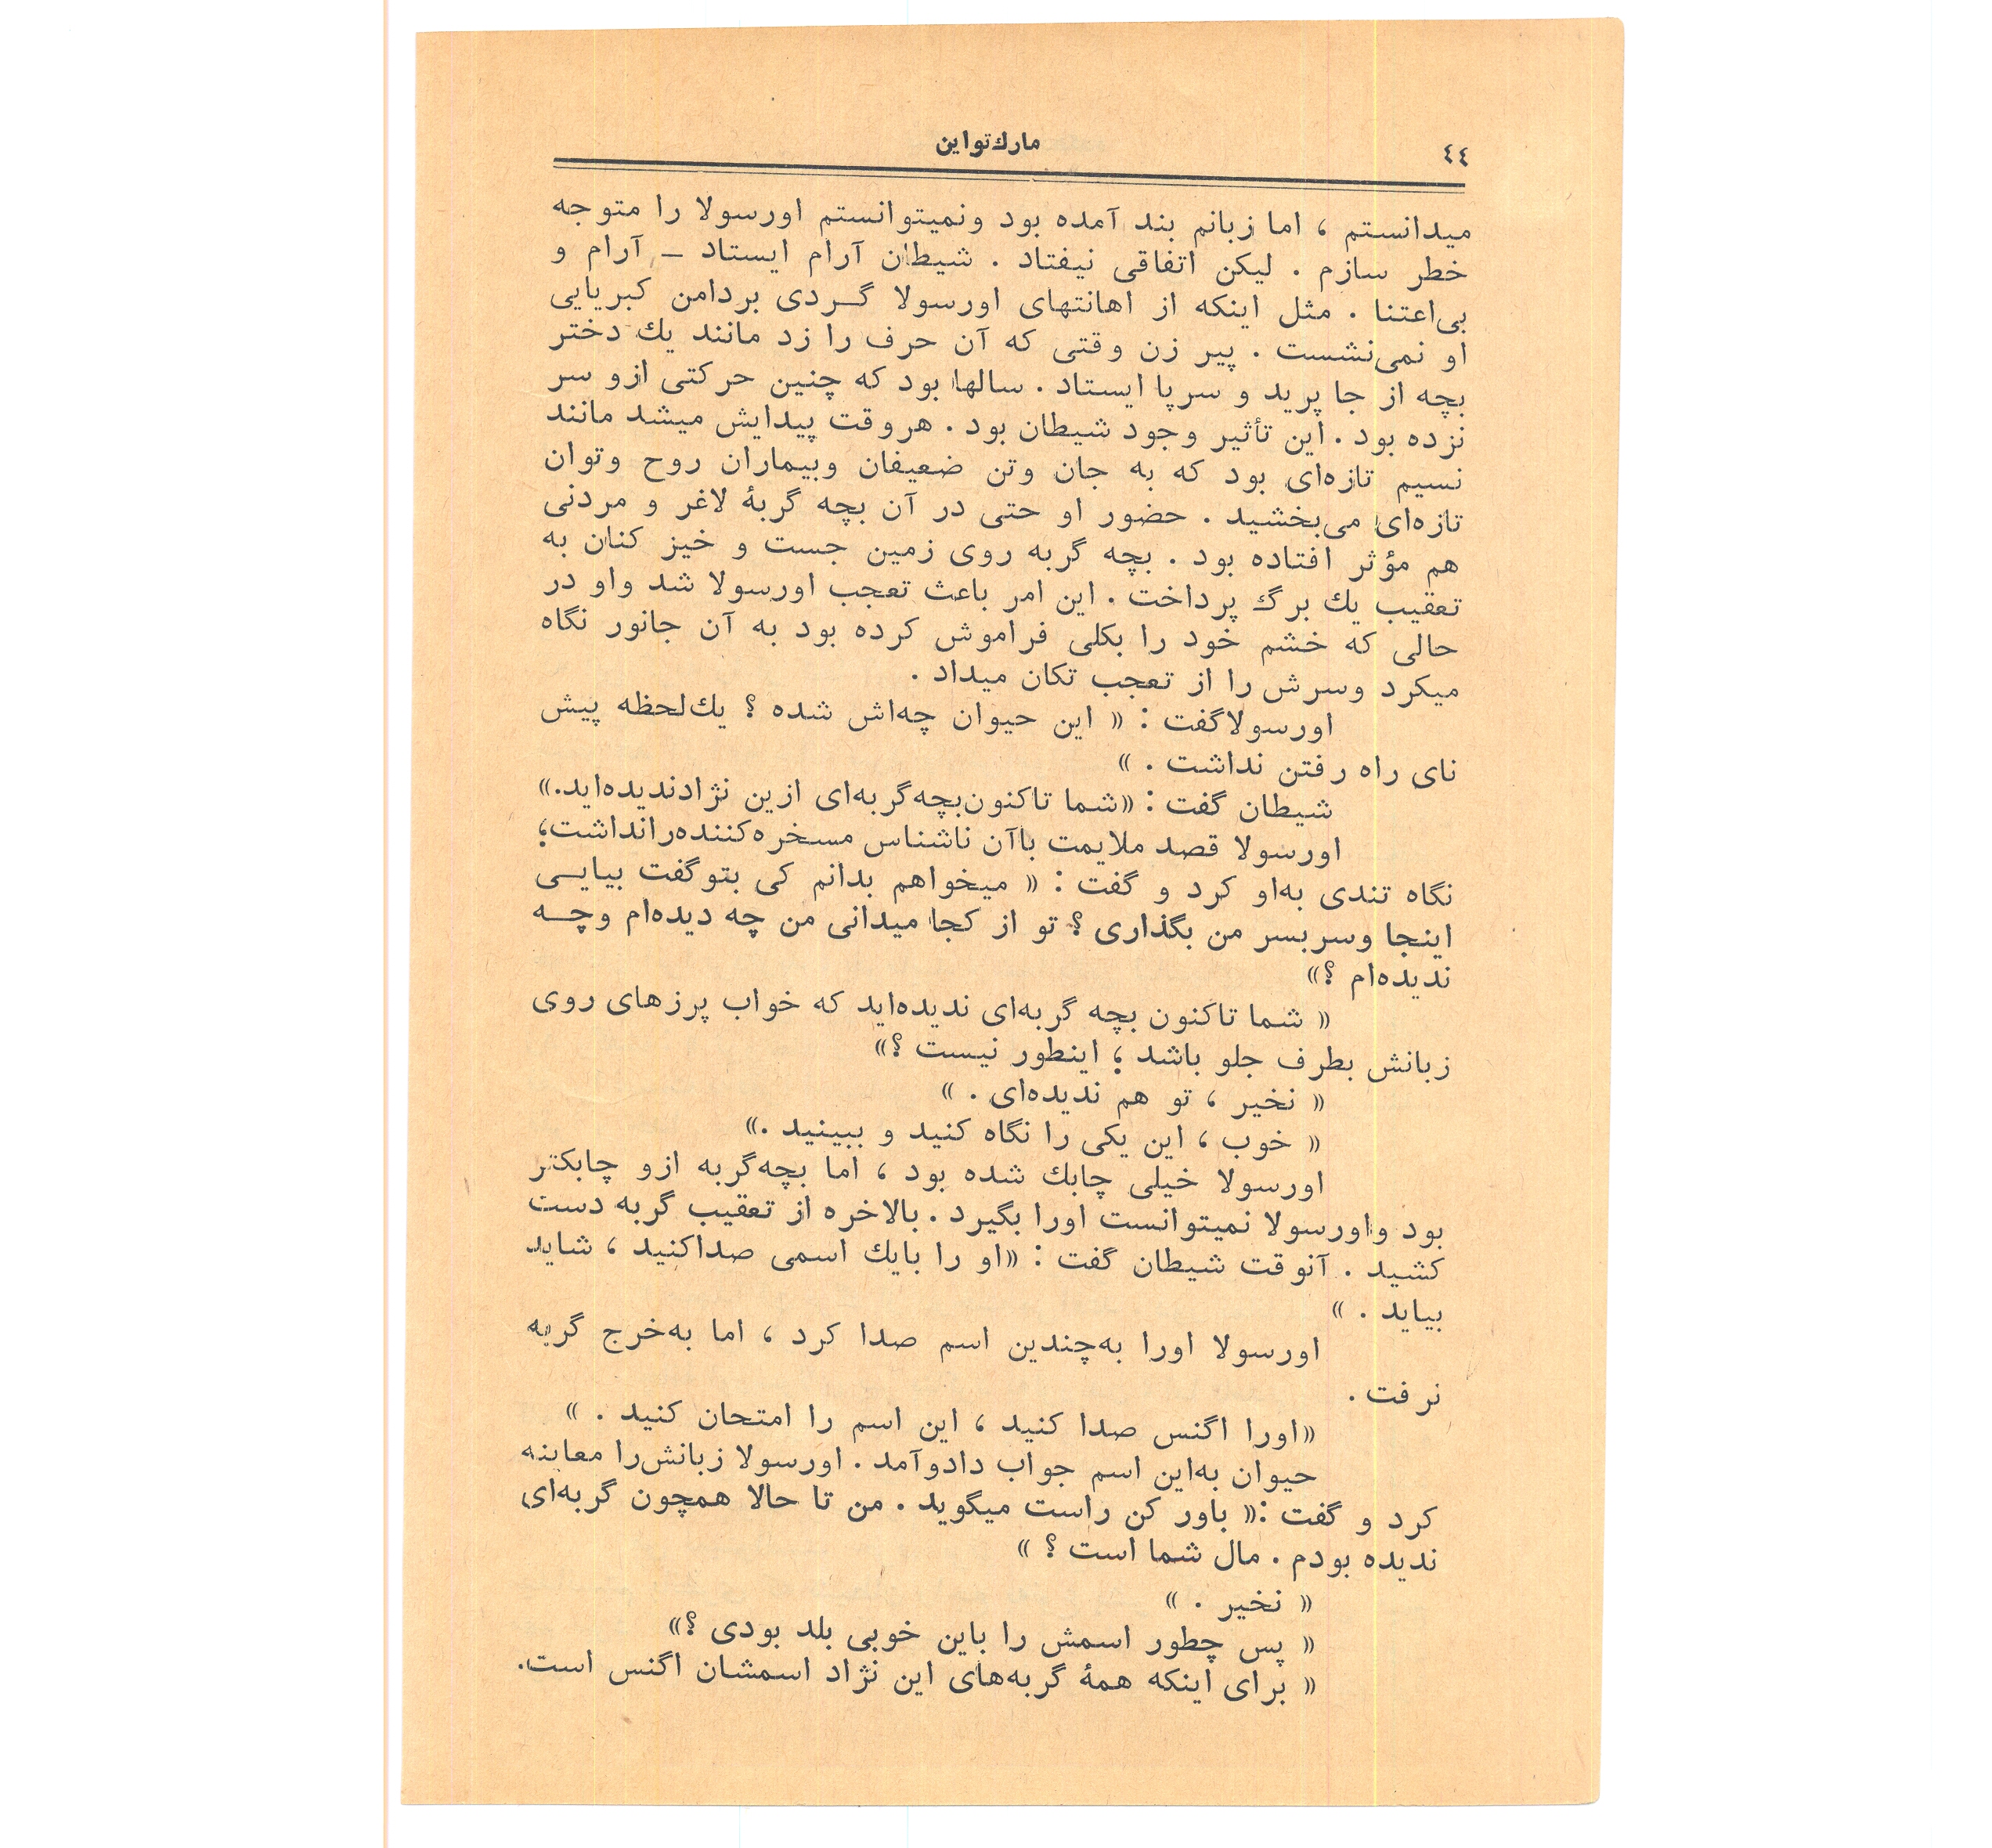 ٤٤
مارك‌تواین
میدانستم ، اما زبانم بند آمده بود ونمیتوانستم اورسولا را متوجه
خطر سازم . لیکن اتفاقی نیفتاد . شیطان آرام ایستاد – آرام و
بی‌اعتنا . مثل اینکه از اهانتهای اورسولا گردی بردامن کبریایی
او نمی‌نشست . پیر زن وقتی که آن حرف را زد مانند یك دختر
بچه از جا پرید و سرپا ایستاد . سالها بود که چنین حرکتی ازو سر
نزده بود . این تأثیر وجود شیطان بود . هروقت پیدایش میشد مانند
نسیم تازه‌ای بود که به جان وتن ضعیفان وبیماران روح وتوان
تازه‌ای می‌بخشید . حضور او حتی در آن بچه گربهٔ لاغر و مردنی
هم مؤثر افتاده بود . بچه گربه روی زمین جست و خیز کنان به
تعقیب یك برگ پرداخت . این امر باعث تعجب اورسولا شد واو در
حالی که خشم خود را بکلی فراموش کرده بود به آن جانور نگاه
میکرد وسرش را از تعجب تکان میداد .
اورسولاگفت : « این حیوان چه‌اش شده ؟ یك‌لحظه پیش
نای راه رفتن نداشت . »
شیطان گفت : «شما تاکنون‌بچه‌گربه‌ای ازین نژادندیده‌اید.»
اورسولا قصد ملایمت باآن ناشناس مسخره‌کننده‌رانداشت؛
نگاه تندی به‌او کرد و گفت : « میخواهم بدانم کی بتوگفت بیایی
اینجا وسربسر من بگذاری ؟ تو از کجا میدانی من چه دیده‌ام وچه
ندیده‌ام ؟»
« شما تاکنون بچه گربه‌ای ندیده‌اید که خواب پرزهای روی
زبانش بطرف جلو باشد ؛ اینطور نیست ؟»
« نخیر ، تو هم ندیده‌ای . »
« خوب ، این یکی را نگاه کنید و ببینید .»
اورسولا خیلی چابك شده بود ، اما بچه‌گربه ازو چابکتر
بود واورسولا نمیتوانست اورا بگیرد . بالاخره از تعقیب گربه دست
کشید . آنوقت شیطان گفت : «او را بایك اسمی صداکنید ، شاید
بیاید . »
اورسولا اورا به‌چندین اسم صدا کرد ، اما به‌خرج گربه
نرفت .
«اورا اگنس صدا کنید ، این اسم را امتحان کنید . »
حیوان به‌این اسم جواب دادوآمد . اورسولا زبانش‌را معاینه
کرد و گفت :« باور کن راست میگوید . من تا حالا همچون گربه‌ای
ندیده بودم . مال شما است ؟ »
« نخیر . »
« پس چطور اسمش را باین خوبی بلد بودی ؟»
« برای اینکه همهٔ گربه‌های این نژاد اسمشان اگنس است.